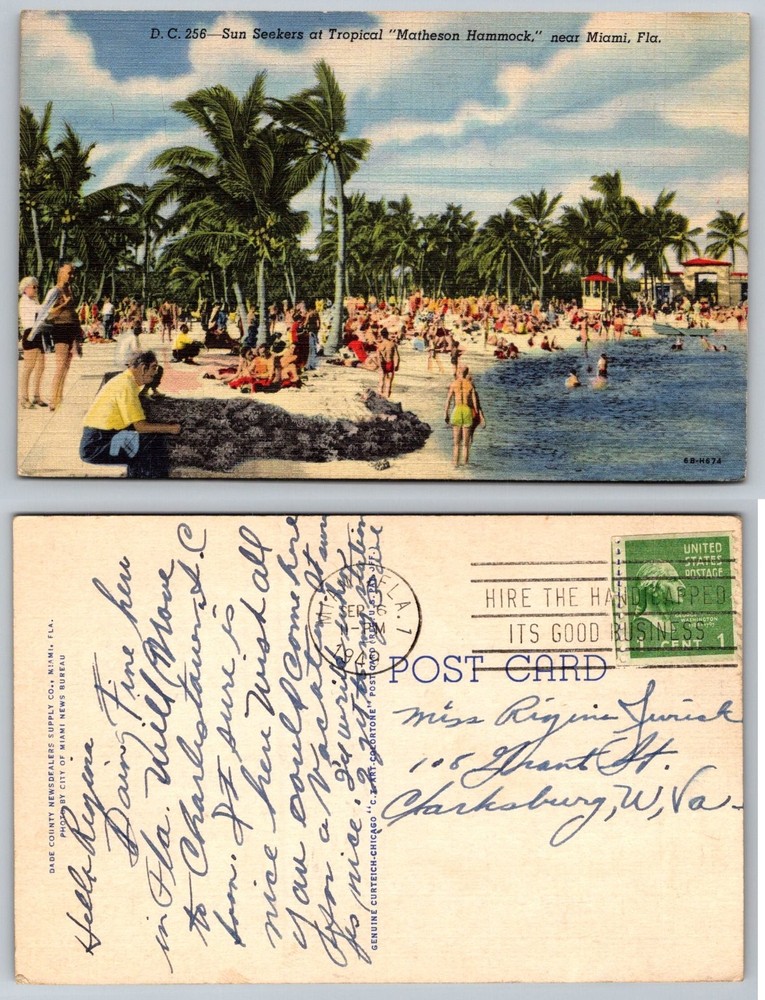 D.C. 256—Sun Seekers at Tropical "Matheson Hammock," near Miami, Fla.
6B-H674
DADE COUNTY NEWSDEALERS SUPPLY CO., MIAMI, FLA.
PHOTO BY CITY OF MIAMI NEWS BUREAU
Hello Regina
Daing Fine here
in Fla. Will Move
to Charlestown S.C
soon. It sure is
nice here Wish all
you could come here
for a vacation. It sure
is nice. I'll write when
I get
GENUINE CURTEICH-CHICAGO "C.T. ART-COLORTONE" POST CARD (REG. U.S. PAT. OFF.)
FLA. 1
SEP 6
PM
HIRE THE HANDICAPPED
ITS GOOD BUSINESS
UNITED
STATES
POSTAGE
WASHINGTON
1 CENT 1
POST CARD
Miss Rigina
106 Grant St.
Clarksburg, W, Va-